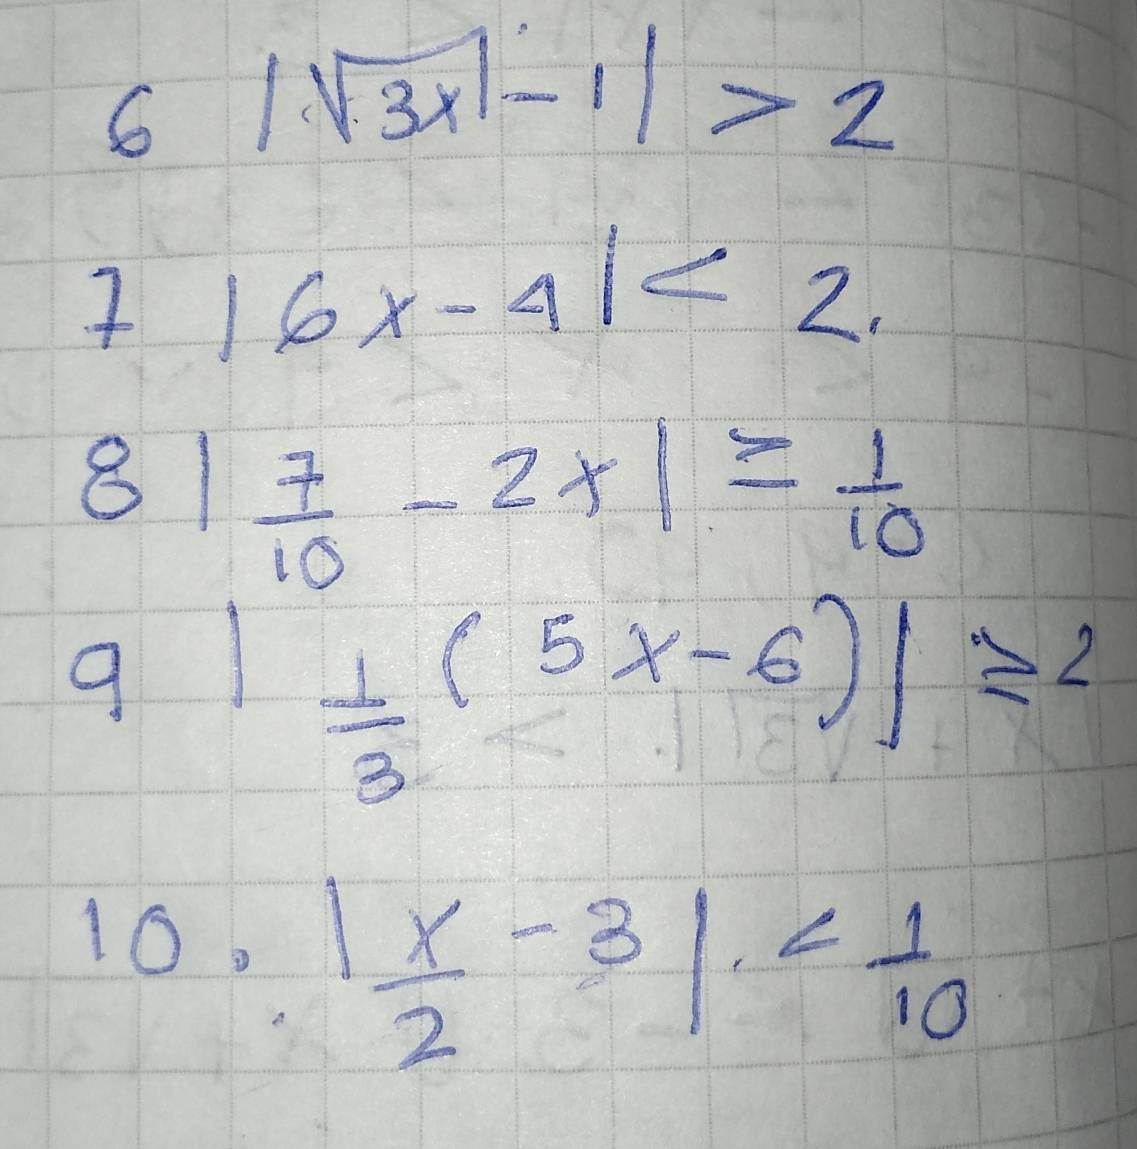 6 |√3x - 1| > 2
7 |6x - 4| < 2.
8 | 7/10 - 2x | ≥ 1/10
9 | 1/3 (5x - 6) | ≥ 2
10. | x/2 - 3 | < 1/10